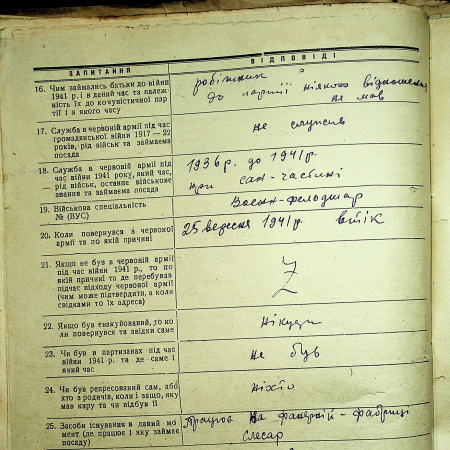 ЗАПИТАННЯ
ВІДПОВІДІ
16. Чим займались батьки до війни
1941 р. і в даний час та належ-
ність їх до комуністичної пар-
тії і з якого часу
робітник
до партії ніякого відношення
не мав
17. Служба в червоній армії під час
громадянської війни 1917—22
років, рід військ та займаєма
посада
не служив
18. Служба в червоній армії під
час війни 1941 року, який час,
рід військ, останнє військове
звання та займаєма посада
1936 р. до 1941 р
при сан-частині
19. Військова спеціальність
№ (ВУС)
Воєн-фельдшар
20. Коли повернувся з червоної
армії та по якій причині
25 вересня 1941 р. втік
21. Якщо не був в червоній армії
під час війни 1941 р., то по
якій причині та де перебував
підчас відходу червоної армії
(чим може підтвердити, а коли
свідками то їх адреса)
Z
22. Якщо був евакуйований, то ко-
ли повернувся та звідки саме
нікуди
23. Чи був в партизанах під час
війни 1941 р. та де саме і
який час
не був
24. Чи був репресований сам, або
хто з родичів, коли і защо, яку
мав кару та чи відбув її
ніхто
25. Засоби існування в даний мо-
мент (де працює і яку займає
посаду)
працює на фанерній-фабриці
слесар